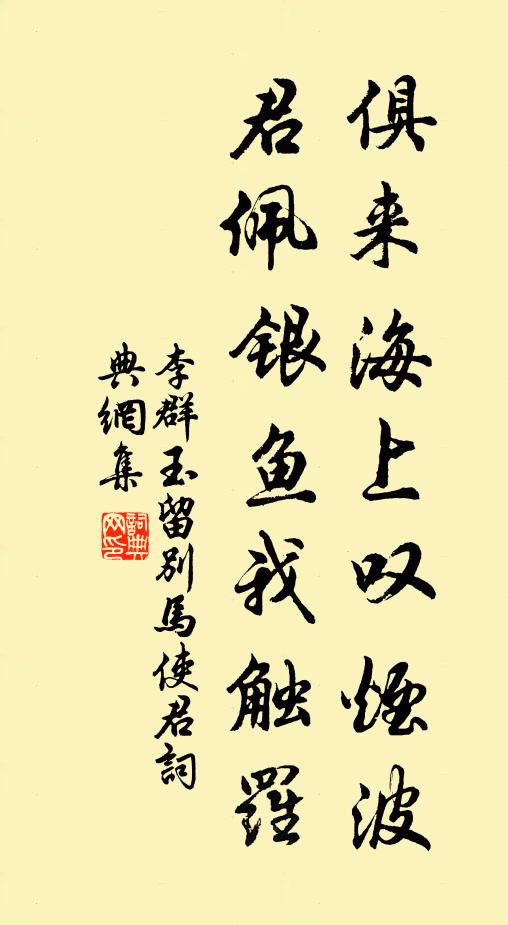 俱来海上叹煙波
君佩银鱼我触羅
李群玉留别馬使君詞
典網集
詞典
网印